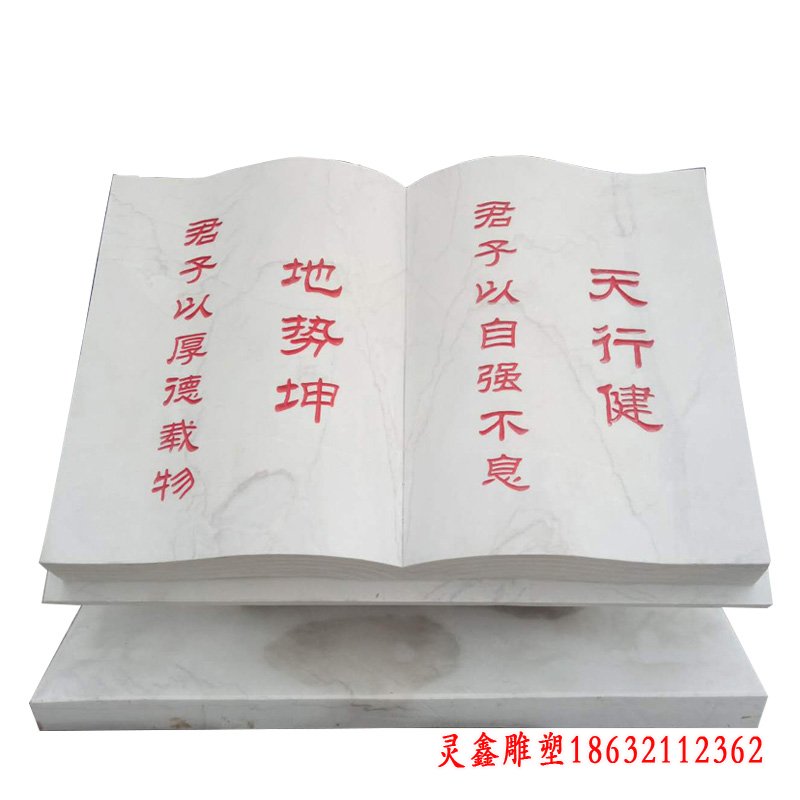 天行健
君子以自强不息
地势坤
君子以厚德载物
灵鑫雕塑18632112362